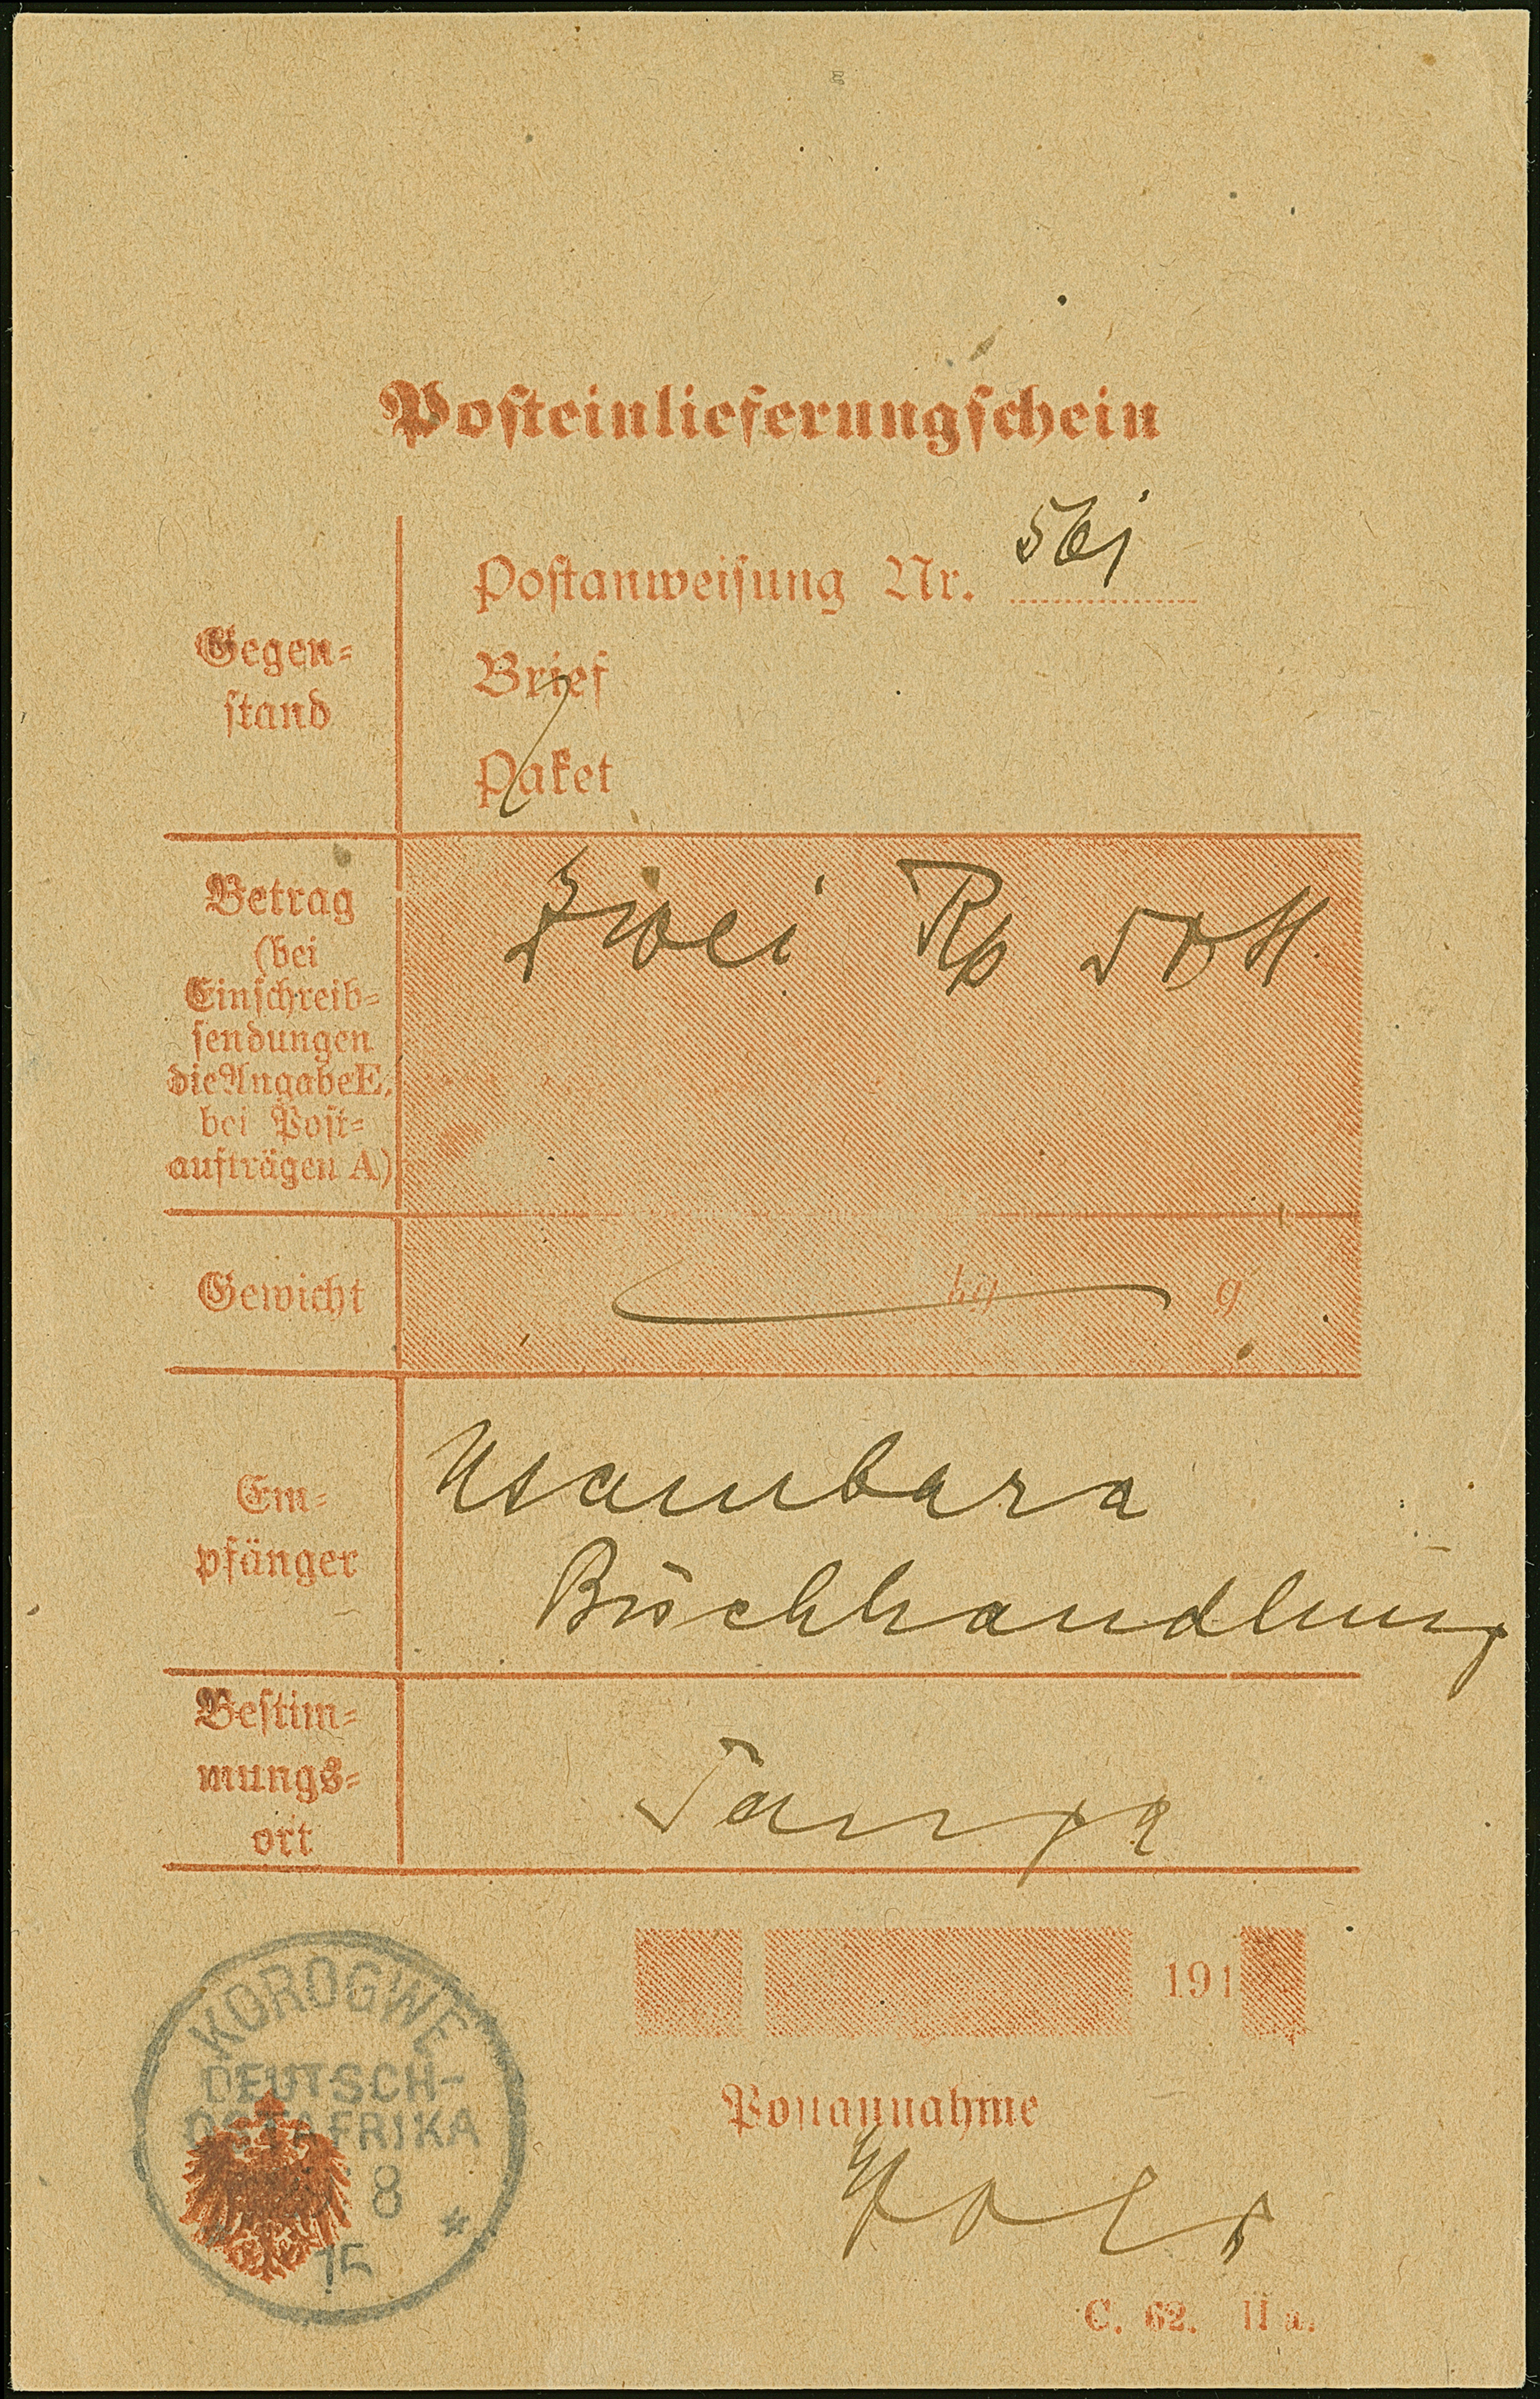 Posteinlieferungschein
Gegen=
stand
Postanweisung Nr. 561
Brief
Paket
Betrag
(bei
Einschreib=
sendungen
die Angabe E,
bei Post=
aufträgen A)
Zwei Rp 50 H.
Gewicht
kg g
Em=
pfänger
Usambara
Buchhandlung
Bestim=
mungs=
ort
Tanga
191
KOROGWE
DEUTSCH-
OSTAFRIKA
8
15
Postannahme
C. 62. II a.